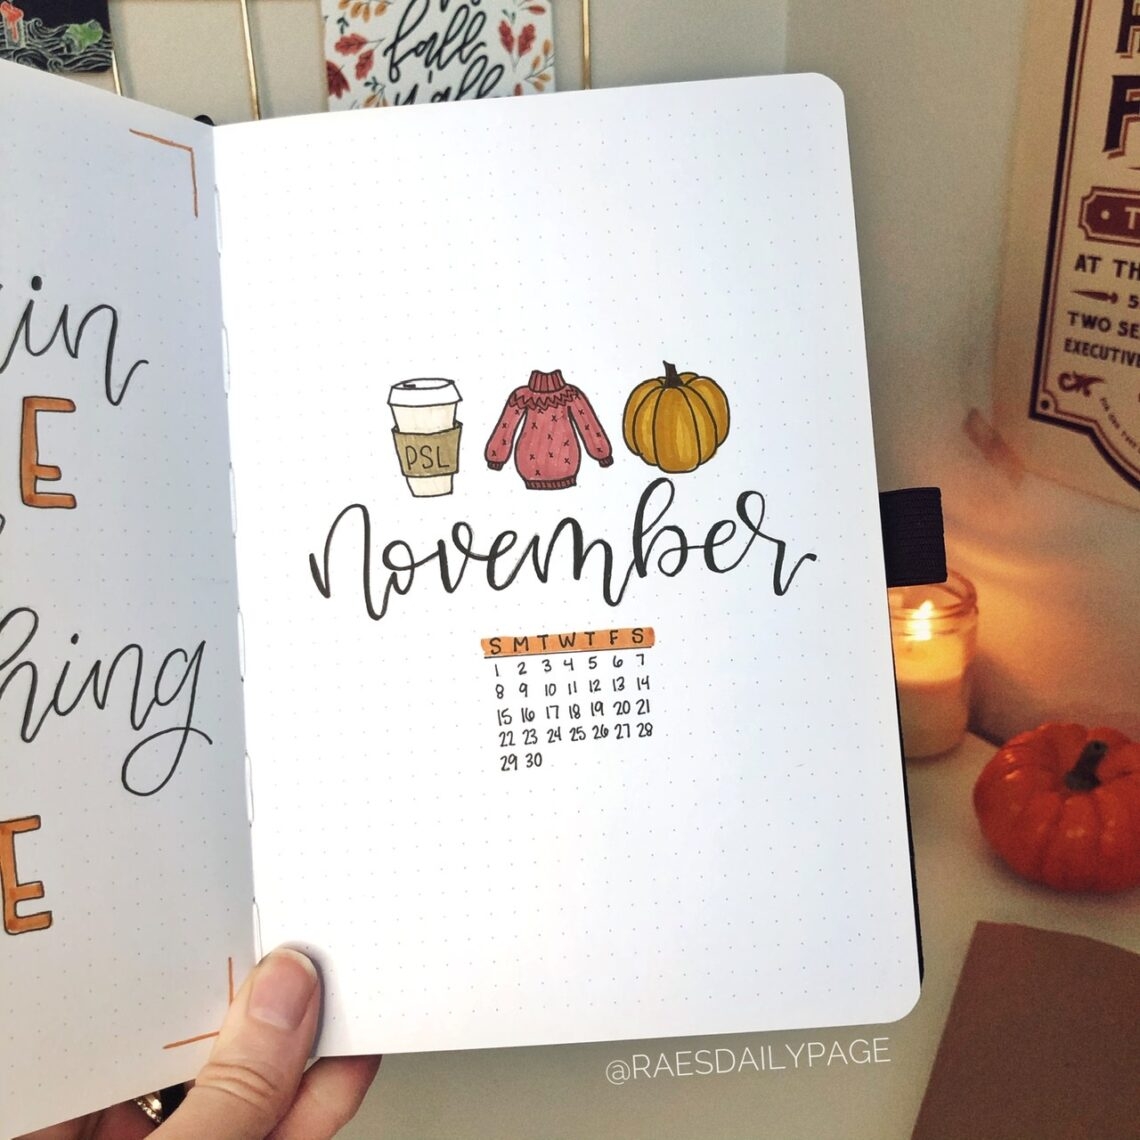 fall
y'all
in
E
hing
E
PSL
november
S M T W T F S
1 2 3 4 5 6 7
8 9 10 11 12 13 14
15 16 17 18 19 20 21
22 23 24 25 26 27 28
29 30
AT TH
5
TWO SE
EXECUTIV
@RAESDAILYPAGE